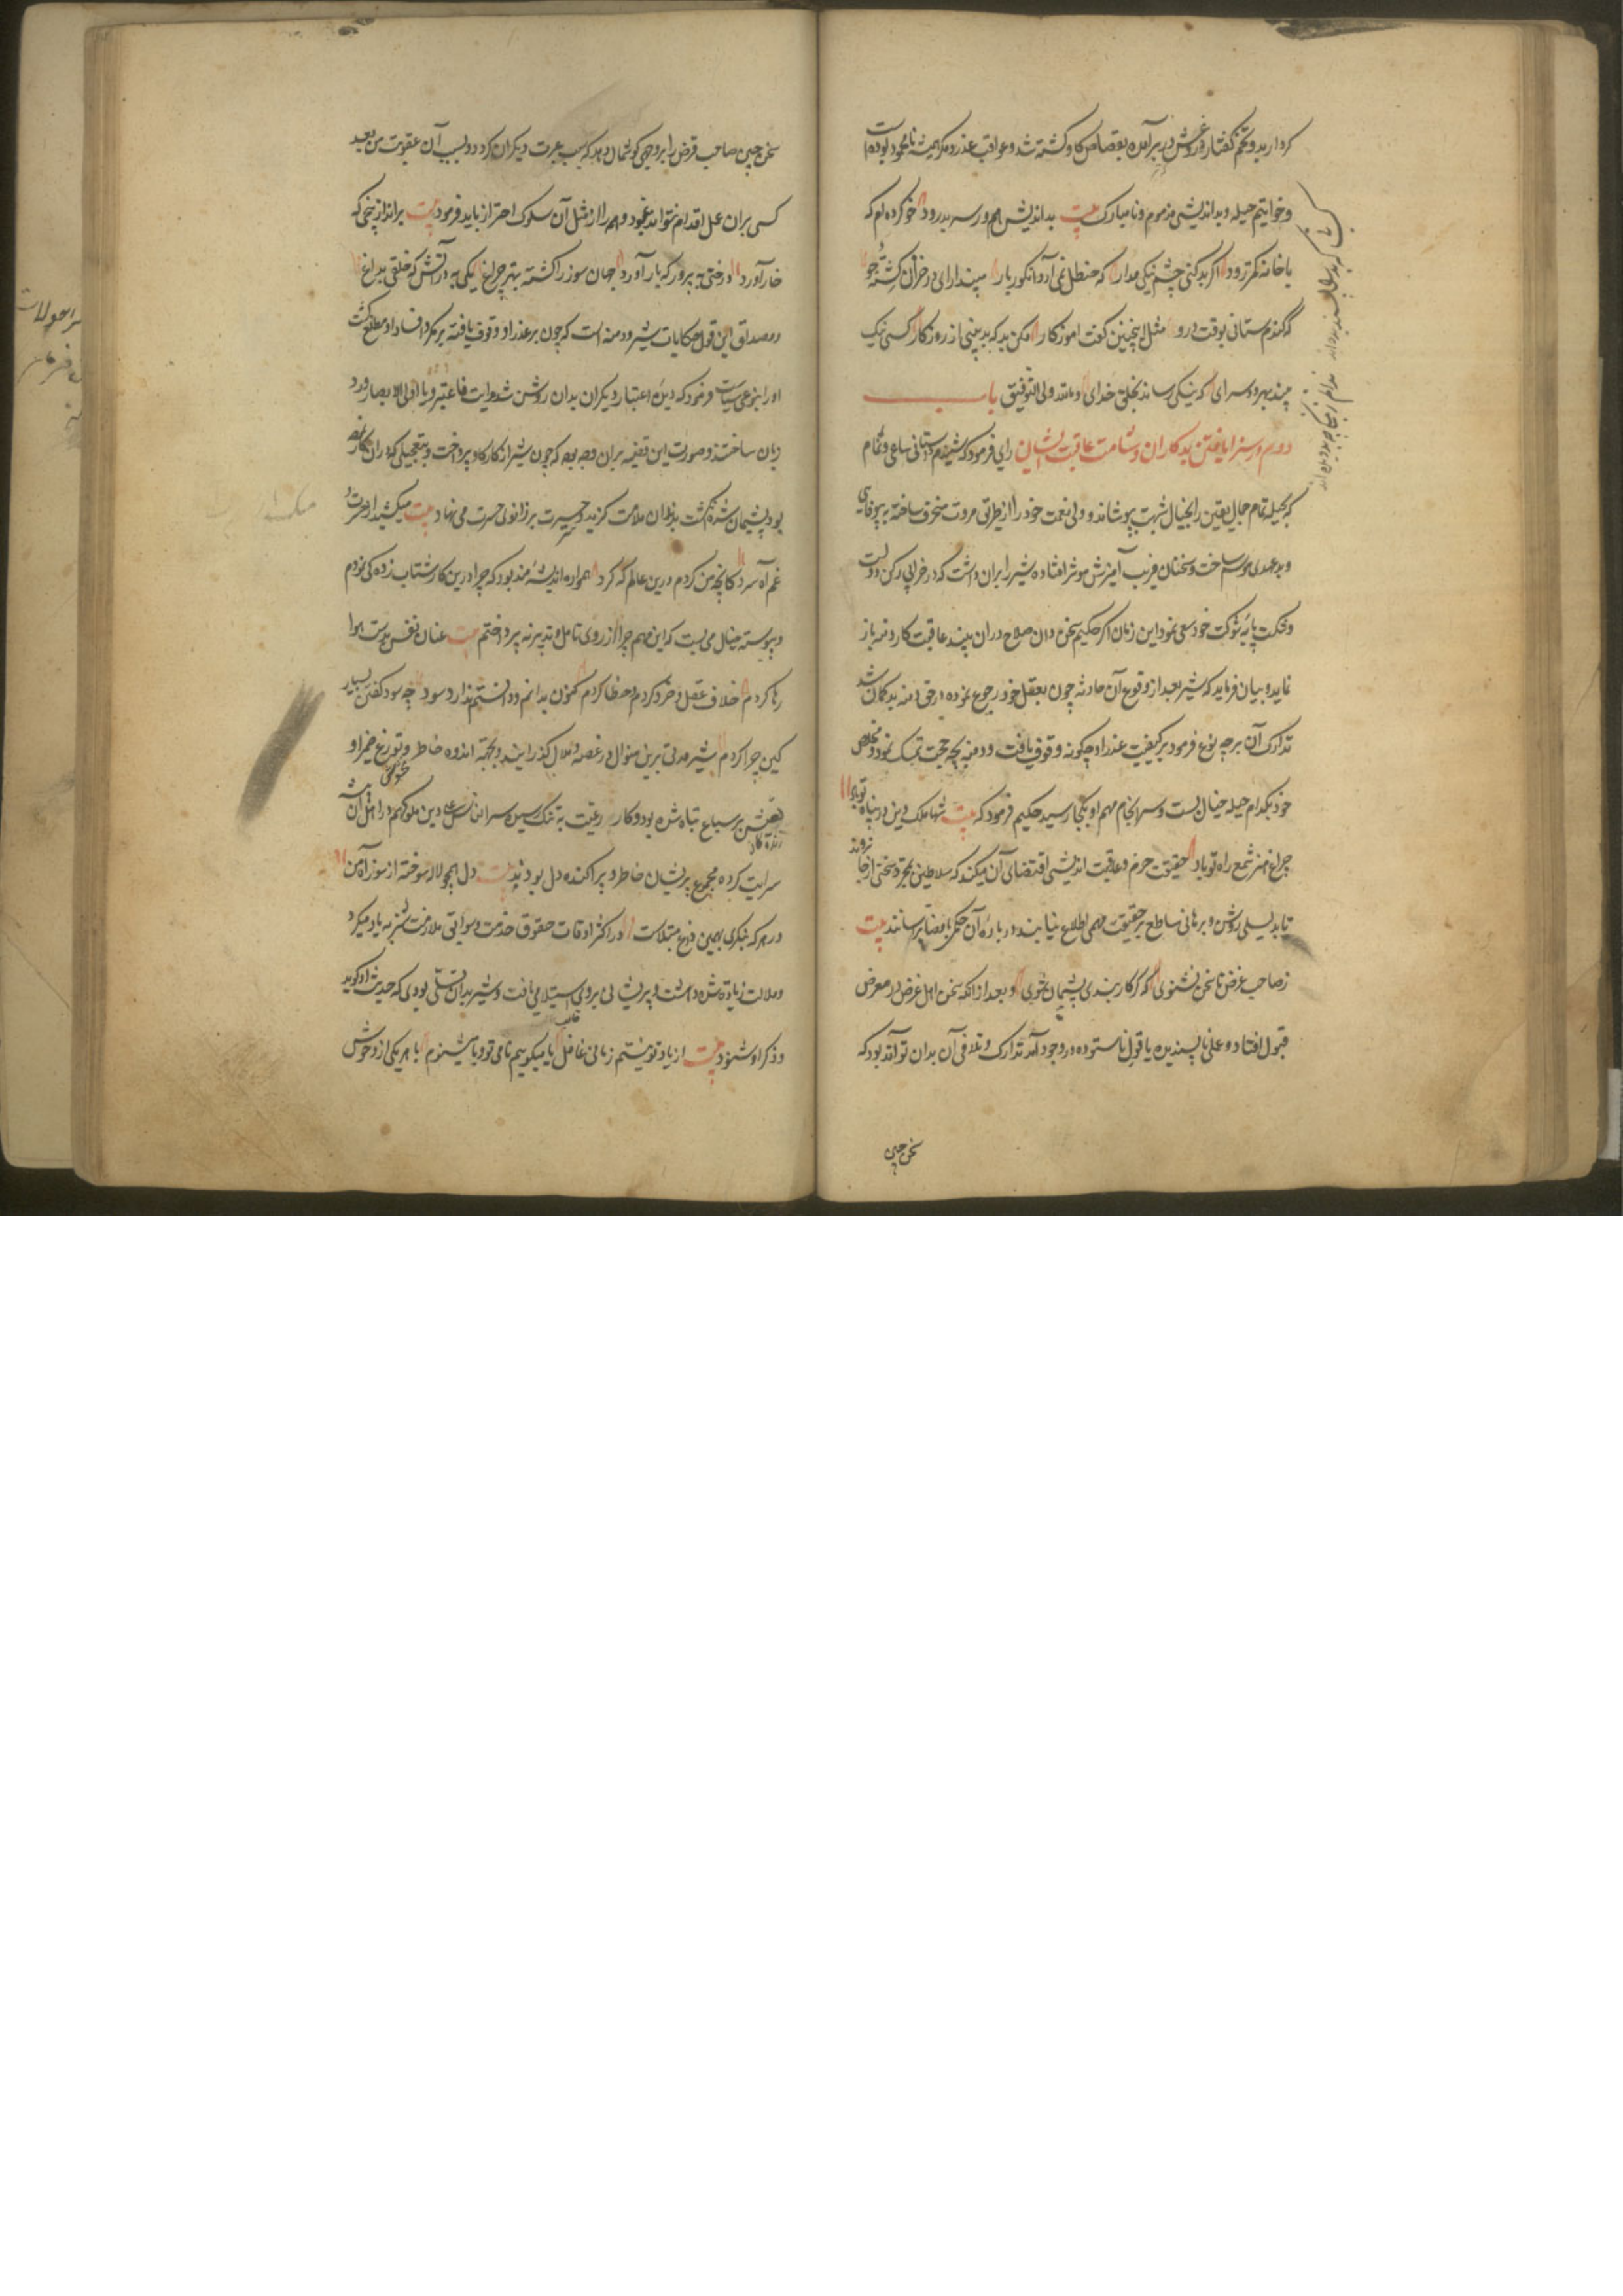 کردار بد و تخم گفتار دروغش در بر آمده بقصاص گاو کشته شد و عواقب غدر و مکر همیشه نامحمود بوده است
و خواتیم حیله و بداندیشی مذموم و نامبارک بیت بداندیش هم در سر بد رود چو کژدم که
با خانه کمتر رود اگر بد کنی چشم نیکی مدار که حنظل نمی آرد انگور بار مپندار ای در خزان کشته جو
که گندم ستانی بوقت درو مثل اینچنین گفت آموزگار مکن بد که بد بینی از روزگار کسی نیک
بیند بهر دو سرای که نیکی رساند بخلق خدای والله ولی التوفیق باب
دوم در سزا یافتن بدکاران و شامت عاقبت ایشان رای فرمود که شنیدم داستان ساعی و نمام
که بحیله تمام جمال یقین را بخیال شبهت بپوشاند و ولی نعمت خود را از طریق مروت منحرف ساخته به بیوفائی
و بدعهدی موسوم ساخت و سخنان فریب آمیزش موثر افتاده شیر را بران داشت که در خرابی رکن دولت
و شکست پایه شوکت خود سعی نمود این زمان اگر حکیم سخن دان صلاح دران بیند عاقبت کار دمنه باز
نماید و بیان فرماید که شیر بعد از وقوع آن حادثه چون بعقل خود رجوع نموده در حق دمنه بدگمان شد
تدارک آن بر چه نوع فرمود و بر کیفیت غدر او چگونه وقوف یافت و دمنه بچه حجت تمسک نمود و مخلص
خود بکدام حیله خیال بست و سرانجام مهم او بکجا رسید حکیم فرمود که بیت شها ملک و دین در پناه تو باد
چراغ هنر شمع راه تو باد حقیقت حزم و عاقبت اندیشی اقتضای آن میکند که سلاطین بمجرد سخنی از جا نروند
تا بدلیلی روشن و برهانی ساطع بر حقیقت مهمی اطلاع نیابند در باره آن حکمی بامضا نرسانند بیت
ز صاحب غرض تا سخن نشنوی که گر کار بندی پشیمان شوی و بعد از آنکه سخن اهل غرض در معرض
قبول افتاد و عملی ناپسندیده یا قول ناستوده در وجود آمد تدارک و تلافی آن بدان تواند بود که
سخن چین
سخن چین صاحب غرض را بر وجهی گوشمال دهد که سبب عبرت دیگران گردد و بسبب آن عقوبت من بعد
کسی بران عمل اقدام نتواند نمود و همه را از مثل آن سلوک احتراز باید فرمود بیت برانداز بیخی که
خار آورد درختی بپرور که بار آورد جهان سوز را کشته بهتر چراغ یکی به در آتش که خلقی بداغ
و مصداق این قول حکایات شیر و دمنه است که چون بر غدر او وقوف یافته بر مکر و افساد او مطلع گشت
او را بنوعی سیاست فرمود که دیده اعتبار دیگران بدان روشن شد و آیت فاعتبروا یا اولی الابصار ورد
زبان ساختند و صورت این قضیه بران وجه بود که چون شیر از کار گاو پرداخت و بتعجیلی که دران کار کرده
بود پشیمان شد انگشت بدندان ملامت گزید و سر حسرت بر زانوی حسرت می نهاد بیت میکشید از سر حسرت و
غم آه سرد کانچه من کردم درین عالم که کرد همواره اندیشه مند بود که چرا درین کار شتاب زدگی نمودم
و پیوسته خیال می بست که این مهم چرا از روی تامل و تدبیر نپرداختم بیت عنان نفس بدست هوا
رها کردم خلاف عقل و خرد کردم و خطا کردم کنون بدانم و دانستنم ندارد سود چه سود گفتن بسیار
کین چرا کردم شیر مدتی برین منوال در غصه و ملال گذرانید و بجهت اندوه خاطر و توزع ضمیر او
سرایت کرده مجموع پریشان خاطر و پراکنده دل بودند بیت دل همچو لاله سوخته از سوز آه من
در هر که بنگری بهمین داغ مبتلاست در اکثر اوقات حقوق خدمت و سوابق ملازمت شنزبه یاد میکرد
و ملالت زیاده شده دهشت و پریشانی بر وی استیلا می یافت و شیر بدان تسلی بودی که حدیث او گوید
و ذکر او شنود بیت از یاد تو نیستم زمانی غافل یا میگویم نام تو و یا میشنوم با هر یکی از وحوش